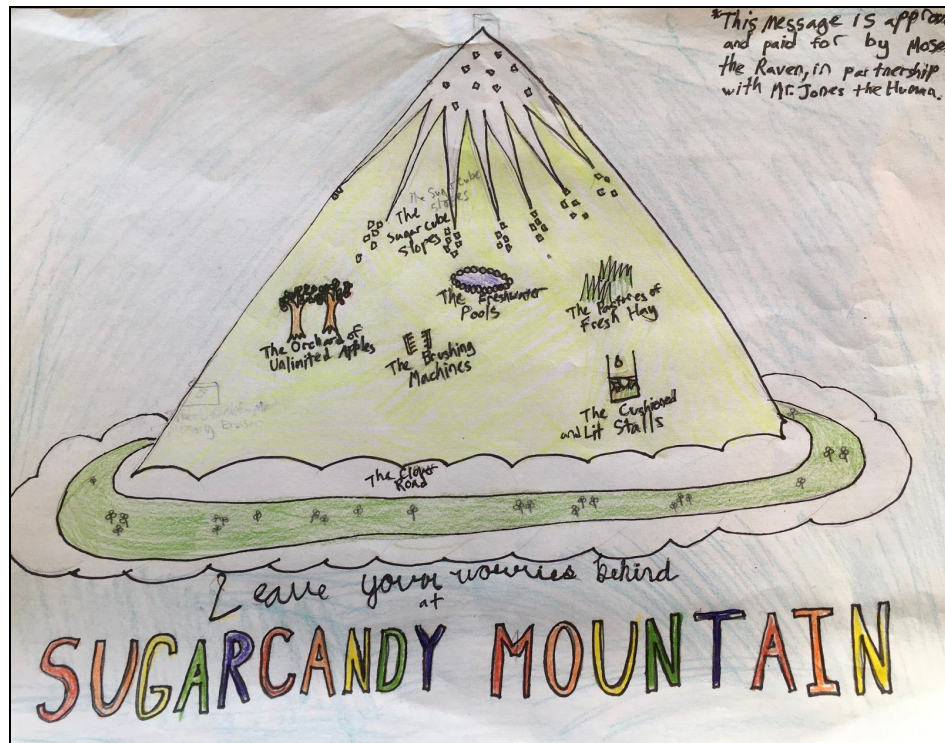 *This message is approv
and paid for by Mose
the Raven, in partnership
with Mr. Jones the Human.
The Sugarcube
Slopes
The
Sugarcube
Slopes
The Freshwater
Pools
The Pastures of
Fresh Hay
The Orchard of
Unlimited Apples
The Brushing
Machines
The Cushioned
and Lit Stalls
The Clover
Road
Leave your worries behind
at
SUGARCANDY MOUNTAIN